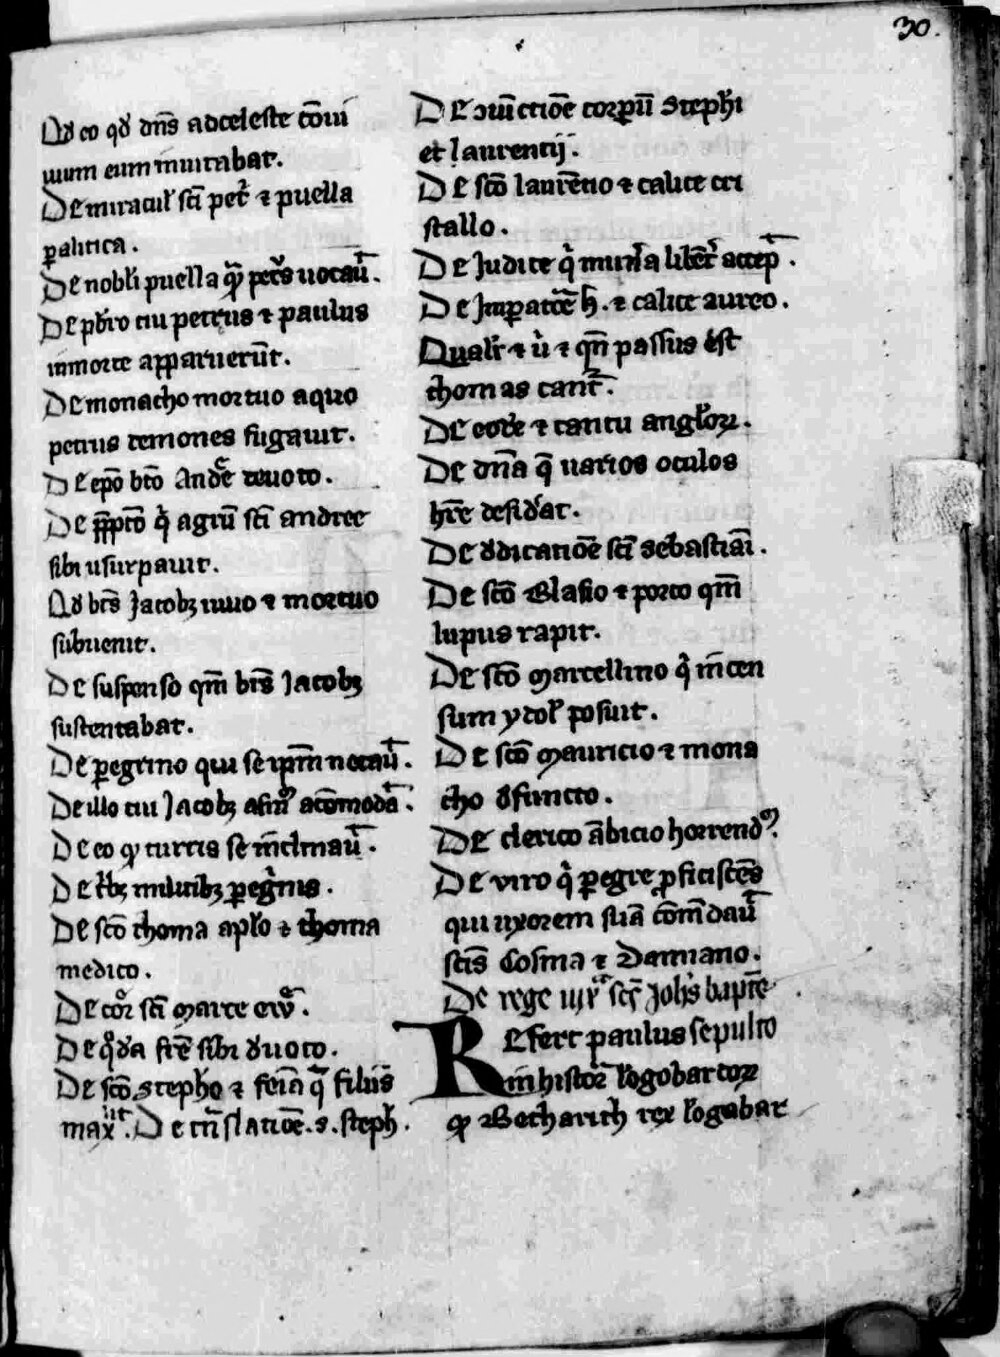 30.
Ad eo qd dns̄ ad celeste cōui
uium eum inuitabat.
De miracul' scī pet' ⁊ puella
palitica.
De nobli puella q̄ petrꝰ uocauit.
De pbr̄o cui petrus ⁊ paulus
in morte apparuerūt.
De monacho mortuo a quo
petrus demones fugauit.
De epo bt̄o Andree deuoto.
De ppto qi agrū scī andree
sibi usurpauit.
Qd bt̄s Jacobꝫ uiuo ⁊ mortuo
subuenit.
De suspenso qm̄ bt̄s Jacobꝫ
sustentabat.
De pegrino qui se ipm̄ necauit.
De illo cui Jacobꝫ asinū acōmodat.
De eo qꝫ turris se inclinauit.
De tbꝫ militibꝫ pegnis.
De scō thoma aplo ⁊ thoma
medico.
De cor scī marce
De qda fre sibi deuoto.
De scō stepho ⁊ feīa q̄ filiis
maxit. De tnslatione .s. steph.
De ɔiunctiōe corpum stephi
et laurentij.
De scō laurentio ⁊ calice cri
stallo.
De Judice qi mun̄a libet accepit.
De Jmpatore h. ⁊ calice aureo.
Qualr̄ ⁊ u' ⁊ qn̄ passus est
thomas cant̄.
De ⁊ cantu angl'oꝝ.
De dn̄a q̄ uarios oculos
hr̄e desidat.
De ddicatiōe scī sebastiāi.
De scō Blasio ⁊ porco qm̄
lupus rapit.
De scō marcellino qi incen
sum ydol' posuit.
De scō mauricio ⁊ mona
cho dfuncto.
De clerico ābicio horrendo?
De viro qi pegre pficiscēs
qui uxorem suā cōmēdauit
scīs Cosma ⁊ Damiano.
De rege scī Johis baptē
Refert paulus sepulto
in histor̄ logobardoꝝ
qꝫ Betharith rex logobar